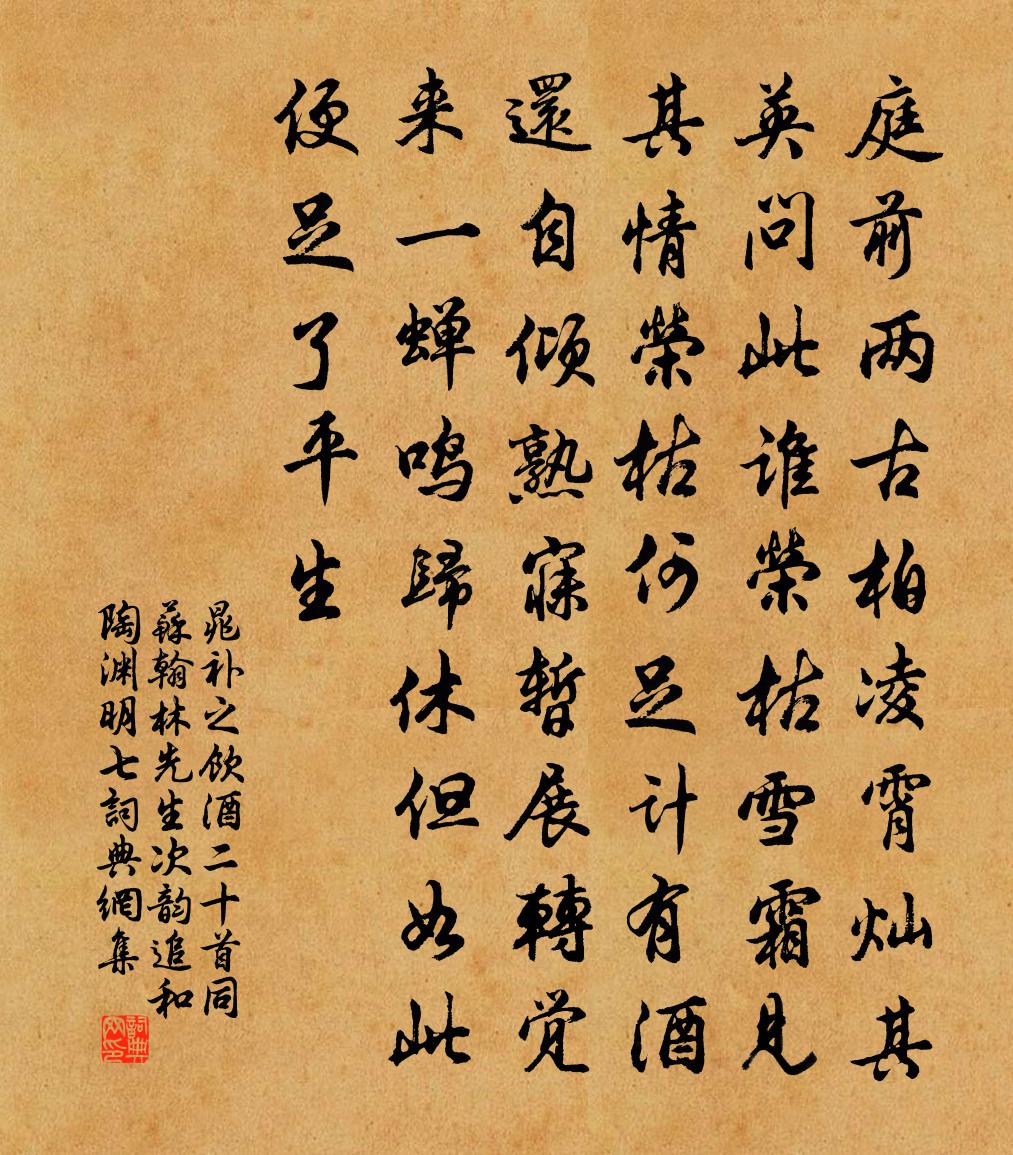 庭前两古柏凌霄灿其
英问此谁榮枯雪霜见
其情榮枯何足计有酒
還自倾熟寐暂展轉觉
来一蝉鸣歸休但如此
便足了平生
晁补之饮酒二十首同
蘇翰林先生次韵追和
陶渊明七詞典網集
詞典
网印